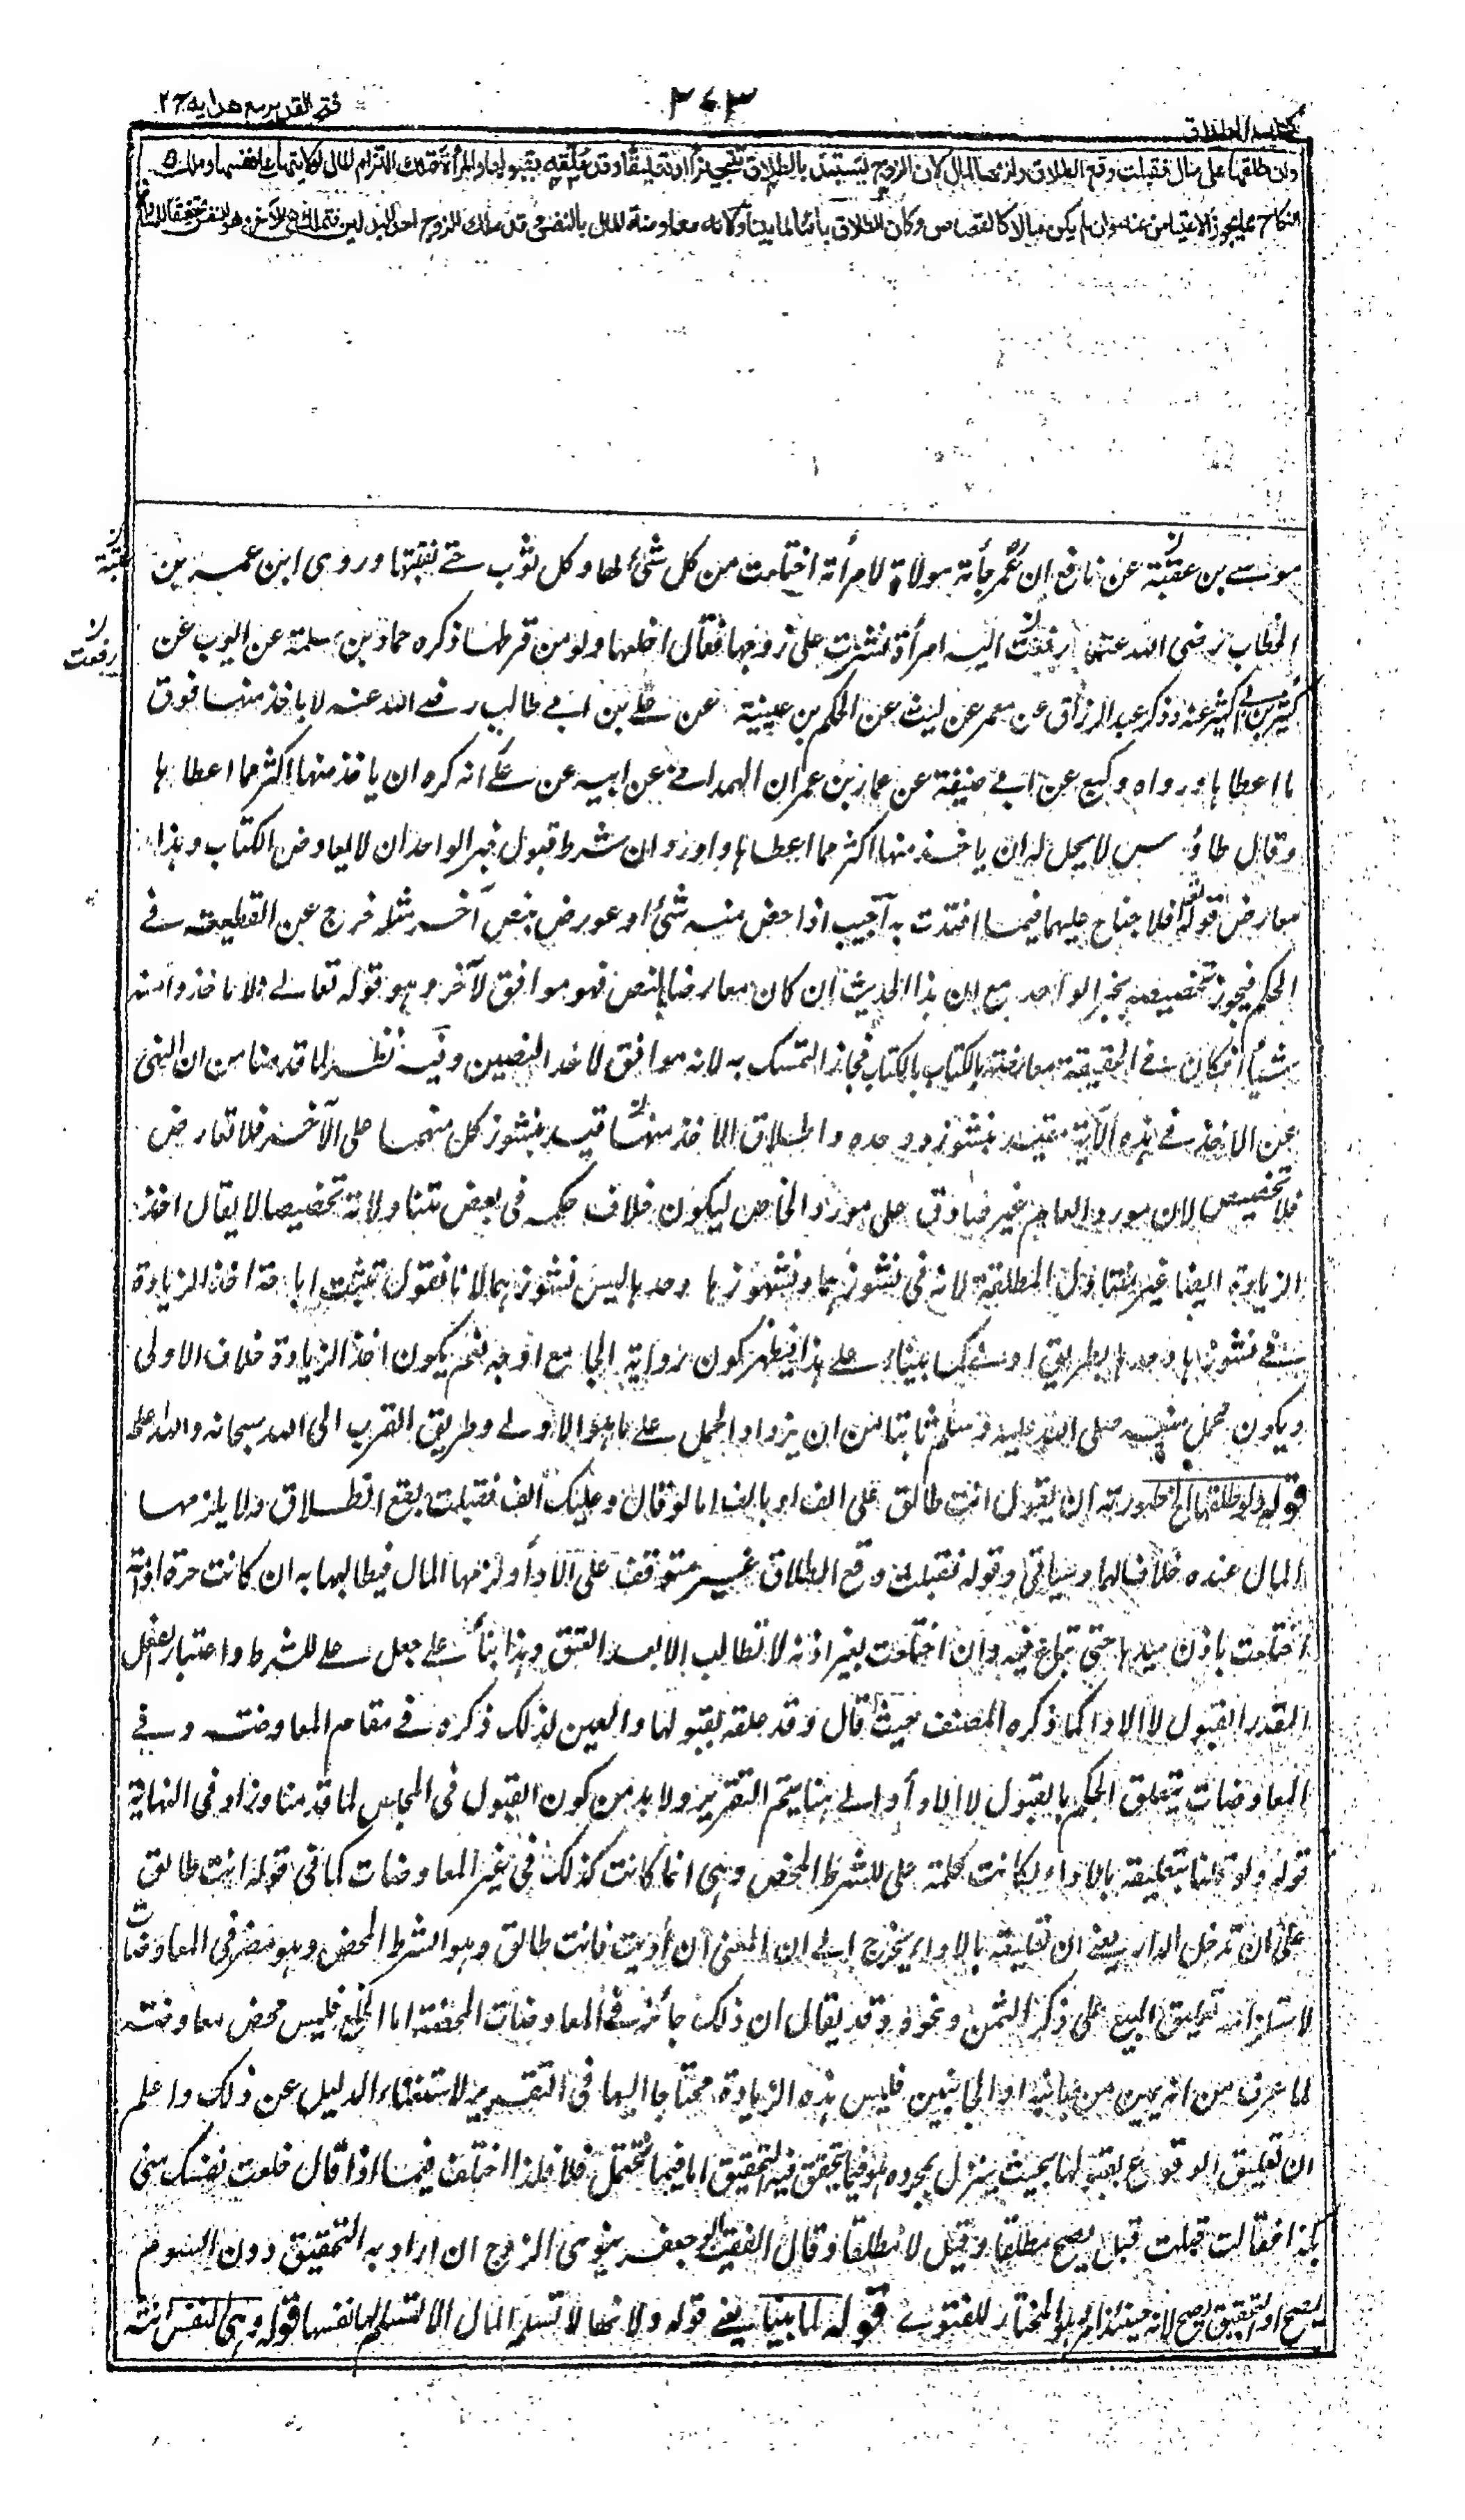 كتاب الطلاق
٣٧٣
فتح القدير مع هدايه ج٢
وان طلقها على مال فقبلت وقع الطلاق ولزمها المال لان الزوج يستبد بالطلاق تنجيزا او تعليقا وقد علقه بقبولها والمرأة تملك التزام المال لولايتها على نفسها وملك
النكاح مما يجوز الاعتياض عنه وان لم يكن مالا كالقصاص وكان الطلاق بائنا لما بينا ولانه معاوضة المال بالنفس وقد ملك الزوج احد البدلين فتملك هى الآخر وهو النفس تحقيقا للمساواة
موسے بن عقبة عن نافع ان عمر جأته مولاة لامرأته اختلعت من كل شئ لها وكل ثوب حتے نفبتها وروى ابن عمر بن
عقبة
الخطاب رضى الله عنهما رفعت اليه امرأة نشزت على زوجها فقال اخلعها ولو من قرطها ذكره حماد بن سلمة عن ايوب عن
رفعت
كثير بن ابى كثير عنه وذكر عبد الرزاق عن معمر عن ليث عن الحكم بن عيينة عن علے بن ابے طالب رضے الله عنه لا ياخذ منها فوق
ما اعطاها ورواه وكيع عن ابے حنيفة عن عمار بن عمران الهمدانے عن ابيه عن علے انه كره ان ياخذ منها اكثر مما اعطاها
وقال طاؤس لا يحل له ان ياخذ منها اكثر مما اعطاها واورد ان شرط قبول خبر الواحد ان لا يعارض الكتاب وهذا
معارض قوله تعالى فلا جناح عليهما فيما افتدت به اجيب اذا خص منه شئ او عورض بنص آخر مثله خرج عن القطعية فے
الحكم فيجوز تخصيصه بخبر الواحد مع ان هذا الحديث ان كان معارضا لنص فهو موافق لآخر وهو قوله تعالے ولا تاخذوا منه
شيئا فكان فے الحقيقة معارضة الكتاب بالكتاب فجاز التمسك به لانه موافق لاحد النصين وفيه نظر لما قدمنا من ان النهى
عن الاخذ فے هذه الآية مقيد بنشوزه وحده واطلاق الاخذ منها قيد بنشوز كل منهما على الآخر فلا تعارض
فلا تخصيص لان مورد العام غير صادق على مورد الخاص ليكون خلاف حكمه فى بعض متناولاته تخصيصا لا يقال اخذ
الزيادة ايضا غير متناول المطلقة لانه فى نشوزهما ونشوزها وحدها ليس نشوزهما لانا نقول تثبت اباحة اخذ الزيادة
فے نشوزها وحدها بطريق اولے كما بيناه علے هذا فيظهر كون رواية الجامع اوجه نعم يكون اخذ الزيادة خلاف الاولى
ويكون محمل منعه صلى الله عليه وسلم ثابتا من ان يزداد الحمل علے ما هو الاولے وطريق القرب الى الله سبحانه والله اعلم
قوله ولو طلقها الخ صورته ان يقول انت طالق على الف او بالف اما لو قال وعليك الف فقبلت يقع الطلاق ولا يلزمها
المال عنده خلافا لهما وسياتى وقوله فقبلت وقع الطلاق غير متوقف على الادأ ولزمها المال فيطالبها به ان كانت حرة او امة
اختلعت باذن سيدها حتى تباع فيه وان اختلعت بغير اذنه لا تطالب الا بعد العتق وهذا بناء علے جعل علے للشرط واعتبار الفعل
المقدر القبول لا الادا كما ذكره المصنف حيث قال وقد علقه بقبولها والعين لذلك ذكره فے مقام المعاوضة وفے
المعاوضات يتعلق الحكم بالقبول لا الادأ والے هنا يتم التقرير ولا بد من كون القبول فى المجلس لما قدمنا وزاد فى النهاية
قوله ولو قلنا بتعليقه بالاداء لكانت كلمة على للشرط المحض وهى انما كانت كذلك فى غير المعاوضات كما فى قوله انت طالق
على ان تدخل الدار يعنے ان تعليقه بالاداء يخرج الے ان المعنى ان اديت فانت طالق وهو الشرط المحض وهو مضر فى المعاوضات
لاستلزامه تعليق البيع على ذكر الثمن ونحوه وقد يقال ان ذلك جائز فے المعاوضات المحضة اما الخلع فليس محض معاوضة
لما عرف من انه يمين من جانبه او الجانبين فليس هذه الزيادة محتاجا اليها فى التقرير لاستغناء الدليل عن ذلك واعلم
ان تعليق الوقوع بقبولها بحيث ينزل بمجرده هو فيما يتحقق فيه التحقيق اما فيما يحتمل فلا فلذا اختلف فيما اذا قال خلعت نفسك منى
بكذا فقالت قبلت قيل يصح مطلقا وقيل لا مطلقا وقال الفقيه ابو جعفر ينوى الزوج ان اراد به التحقيق دون السوم
يصح او التحقيق يصح لانه حينئذ امر وهو المختار للفتوے قوله لما بينا يعنے قوله ولانها لا تسلم المال الا لتسلم لها نفسها قوله وهى النفس انته